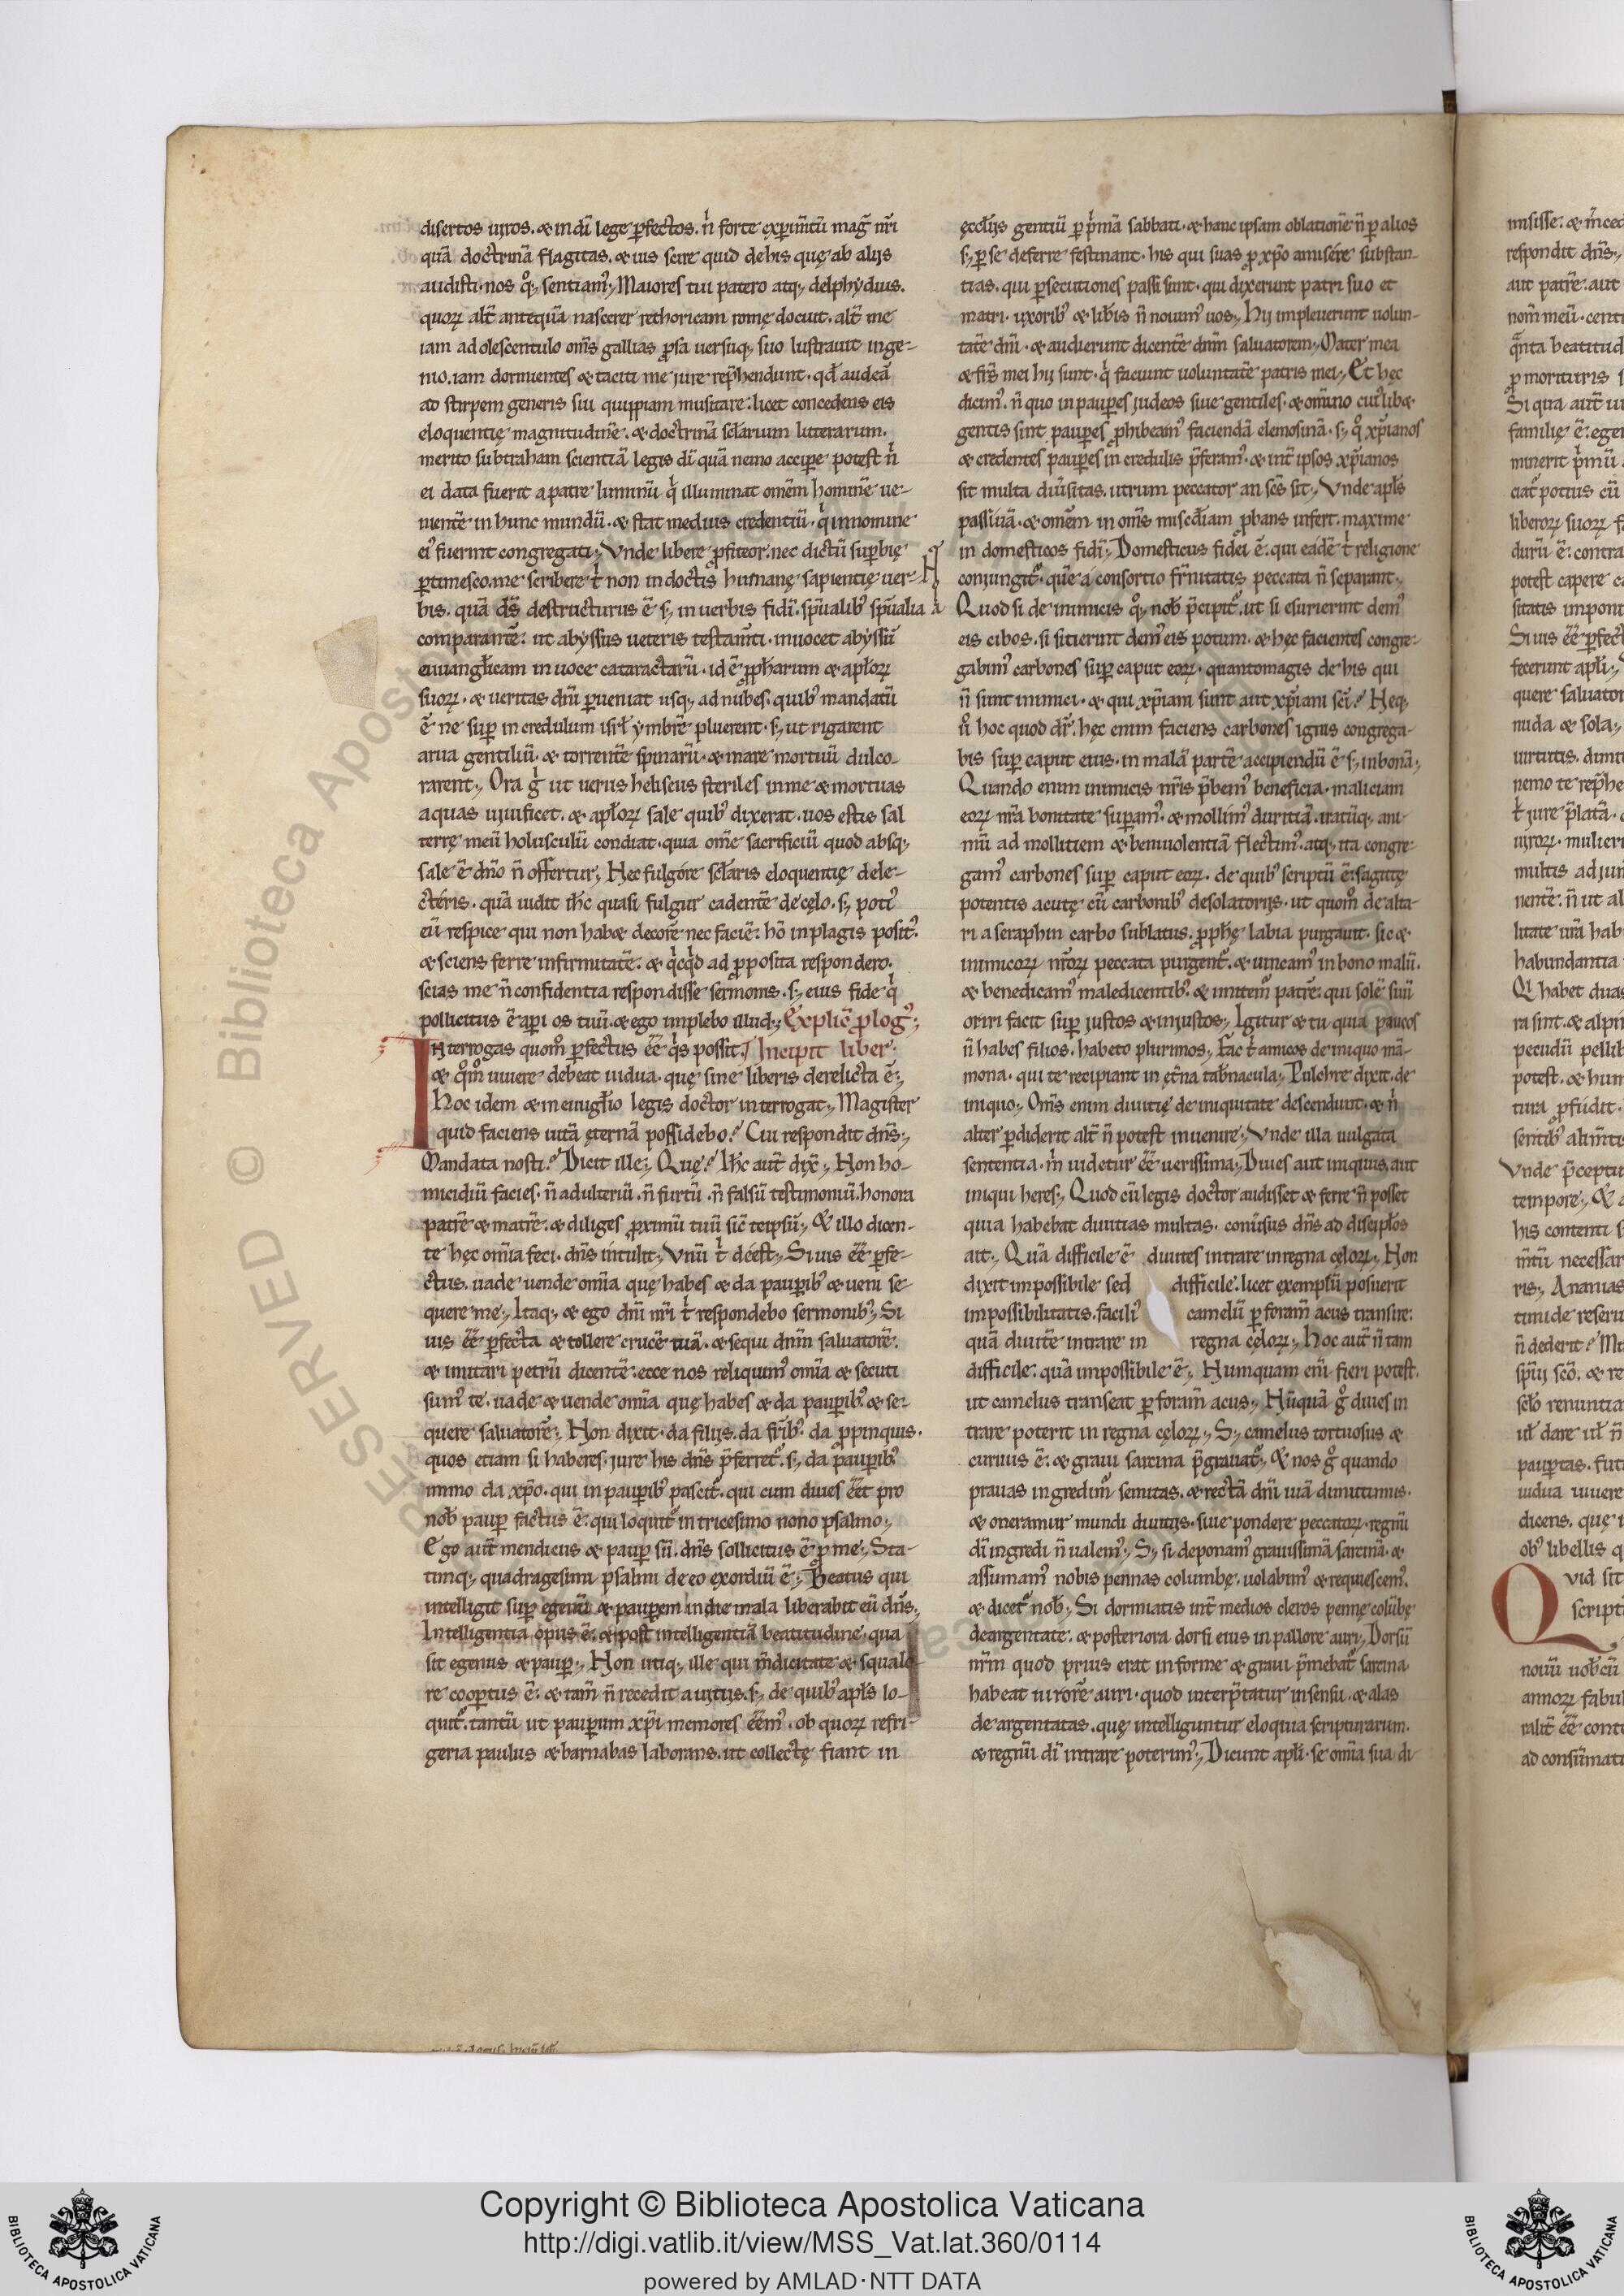 disertos uiros. & in dī lege ꝑfectos. n̍ forte exꝑim̄tū mag̃ nr̄i
quā doctrinā flagitas. & uis scire quid de his quę ab aliis
audisti. nos q̊q; sentiam᾽; Maiores tui patero atq; delphydius.
quoꝝ alt̄ antequā nascerer rethoricam romę docuit. alt̄ me
iam adolescentulo om̄s gallias ꝓsa uersuq; suo lustrauit inge-
nio. iam dormientes & taciti me iure rep̄hendunt. qđ audeā
ad stirpem generis sui quippiam musitare: licet concedens eis
eloquentię magnitudinē. & doctrinā sclarium litterarum.
merito subtraham scientiā legis dī quā nemo acciꝑe potest n̍
ei data fuerit a patre luminū q̍ illuminat omēm hominē ue-
nientē in hunc mundū. & stat medius credentiū. q̍ in nomine
ei᾽ fuerint congregati; Vnde libere ꝓfiteor: nec dictū suꝑbię
ꝑtimesco. me scribere t̍ non in doctis humanę sapientię uer-
bis. quā ds̄ destructurus ē s; in uerbis fidī. spūalib᾽ spūalia
comparantē: ut abyssus ueteris testam̄ti. inuocet abyssū
euuanglicam in uoce cataractarū. id ē ꝓpharum & apl̄oꝝ
suoꝝ. & ueritas dn̄i ꝑueniat usq; ad nubes. quib᾽ mandatū
ē ne suꝑ incredulum isrl̄ ymbrē pluerent. s; ut rigarent
arua gentiliū. & torrentē spinarū. & mare mortuū dulco-
rarent; Ora g̍ ut uerus heliseus steriles in me & mortuas
aquas uiuificet. & apl̄oꝝ sale quib᾽ dixerat. uos estis sal
terrę meū holusculū condiat. quia om̄e sacrificiū quod absq;
sale ē dn̄o n̄ offertur; Nec fulgore sclaris eloquentię dele-
cteris. quā uidit ih̄c quasi fulgur cadentē de cęlo. s; poti᾽
eū respice qui non hab& decorē nec faciē: hō in plagis posit᾽.
& sciens ferre infirmitatē. & q̍cq̍d ad ꝓposita respondero.
scias me n̄ confidentia respondisse sermonis. s; eius fide q̍
pollicitus ē aꝑi os tuū. & ego implebo illud; Explic̄ ꝓlog᾽;
INterrogas quom̊ ꝑfectus ēē q̍s possit. Incipit liber.
& q̊m̊ uiuere debeat uidua. quę sine liberis derelicta ē;
Hoc idem & in euuglio legis doctor interrogat; Magister
quid faciens uitā ęternā possidebo? Cui respondit dn̄s;
Mandata nosti? Dicit ille; Quę? Ih̄c aut̄ dix̄; Non ho-
micidiū facies. n̄ adulteriū. n̄ furtū. n̄ falsū testimoniū. honora
patrē & matrē. & diliges ꝓximū tuū sic̄ te ipsū; & illo dicen-
te hęc om̄ia feci. dn̄s intulit; Vnū t̍ deest; Si uis ēē ꝑfe-
ctus. uade uende om̄ia quę habes & da pauꝑib᾽ & ueni se-
quere me; Itaq; & ego dn̄i nr̄i t̍ respondebo sermonib᾽; Si
uis ēē ꝑfecta & tollere crucē tuā. & sequi dn̄m saluatorē.
& imitari petrū dicentē. ecce nos reliquim᾽ om̄ia & secuti
sum᾽ te. uade & uende om̄ia quę habes & da pauꝑib᾽. & se-
quere saluatorē; Non dixit. da filiis. da fr̄ib᾽. da ꝓpinquis.
quos etiam si haberes. iure his dn̄s p̄ferret᾽. s; da pauꝑib᾽
immo da xp̄o. qui in pauꝑib᾽ pascit᾽. qui cum diues ēēt pro
nob̄ pauꝑ factus ē: qui loquit᾽ in tricesimo nono psalmo;
Ego aut̄ mendicus & pauꝑ sū. dn̄s sollicitus ē ꝓ me; Sta-
timq; quadragesimi psalmi de eo exordiū ē; Beatus qui
intelligit suꝑ egenū & pauꝑem in die mala liberabit eū dn̄s;
Intelligentia opus ē. & post intelligentiā beatitudine. qua
sit egenus & pauꝑ; Non utiq; ille qui m̄dicitate & squalo-
re cooꝑtus ē. & tam̄ n̄ recedit a uitiis. s; de quib᾽ apl̄s lo-
quit᾽. tantū ut pauꝑum xp̄i memores ēēm᾽. ob quoꝝ refri-
geria paulus & barnabas laborans. ut collectę fiant in
ęccl̄iis gentiū ꝑ p̍mā sabbati. & hanc ipsam oblationē n̄ ꝑ alios
s; ꝑ se deferre festinant. his qui suas ꝓ xp̄o amisere substan-
tias. qui ꝑsecutiones passi sunt. qui dixerunt patri suo et
matri. uxorib᾽ & lib̄is n̄ nouim᾽ uos; Hii impleuerunt uolun-
tatē dn̄i. & audierunt dicentē dn̄m saluatorem; Mater mea
& fr̄s mei hii sunt. q̍ faciunt uoluntatē patris mei; Et hęc
dicim᾽. n̄ quo in pauꝑes iudeos siue gentiles. & omnino cui᾽lib&
gentis sint pauꝑes ꝓhibeam᾽ faciendā elemosinā. s; q̊ xp̄ianos
& credentes pauꝑes in credulis p̄feram᾽. & int̄ ipsos xp̄ianos
sit multa diūsitas. utrum peccator an scs̄ sit; Vnde apl̄s
passiuā. & omēm in om̄s miscđiam ꝓbans infert. maxime
in domesticos fidī; Domesticus fidei ē: qui eadē t̍ religione
coniungit᾽. quē a consortio fr̄nitatis peccata n̄ separant;
Quod si de inimicis q̊q; nob̄ p̄cipit᾽. ut si esurierint dem᾽
eis cibos. si sitierint dem᾽ eis potum. & hęc facientes congre-
gabim᾽ carbones suꝑ caput eoꝝ. quantomagis de his qui
n̄ sunt inimici. & qui xp̄iani sunt aut xp̄iani sc̄i? Neq;
ū hoc quod dr̄. hęc enim faciens carbones ignis congrega-
bis suꝑ caput eius. in malā partē accipiendū ē s; in bonā;
Quando enim inimicis nr̄is p̄bem᾽ beneficia. maliciam
eoꝝ nr̄a bonitate suꝑam᾽. & mollim᾽ duritiā. iratūq; ani-
mū ad mollitiem & beniuolentiā flectim᾽. atq; ita congre-
gam᾽ carbones suꝑ caput eoꝝ. de quib᾽ scriptū ē: sagitę
potentis acutę cū carbonib᾽ desolatoriis. ut quom̊ de alta-
ri a seraphin carbo sublatus. ꝓphę labia purgauit. sic &
inimicoꝝ nr̄oꝝ peccata purgent᾽. & uincam᾽ in bono malū.
& benedicam᾽ maledicentib᾽. & imitem᾽ patrē: qui solē suū
oriri facit suꝑ iustos & iniustos; Igitur & tu quia paucos
n̄ habes filios. habeto plurimos; Fac t̍ amicos de iniquo mā-
mona. qui te recipiant in ęt̄na tab̄nacula; Pulchre dixit. de
iniquo; Om̄s enim diuitię de iniquitate descendunt. & n̍
alter ꝑdiderit alt̄ n̄ potest inuenire; Vnde illa uulgata
sententia. m̍ uidetur ēē uerissima; Diues aut iniquus. aut
iniqui heres; Quod cū legis doctor audisset & ferre n̄ posset
quia habebat diuitias multas. conūsus dn̄s ad discipl̄os
ait; Quā difficile ē diuites intrare in regna cęloꝝ; Non
dixit impossibile sed difficile. licet exemplū posuerit
impossibilitatis. facili᾽ camelū ꝑ foram̄ acus transire:
quā diuitē intrare in regna cęloꝝ; Hoc aut̄ n̄ tam
difficile. quā impossibile ē; Numquam enī fieri potest.
ut camelus transeat ꝑ foram̄ acus; Nūquā g̊ diues in
trare poterit in regna cęloꝝ; S; camelus tortuosus &
curuus ē. & graui sarcina p̄grauat᾽; & nos g̊ quando
prauas ingredim᾽ semitas. & rectā dn̄i uiā dimittimus.
& oneramur mundi diuitiis. siue pondere peccatoꝝ. regnū
dī ingredi n̄ ualem᾽; S; si deponam᾽ grauissimā sarcinā. &
assumam᾽ nobis pennas columbę. uolabim᾽ & requiescem᾽.
& dicet᾽ nob̄; Si dormiatis int̄ medios cleros pennę colūbę
deargentate. & posteriora dorsi eius in pallore auri; Dorsū
nr̄m quod prius erat informe & graui p̄mebat᾽ sarcina.
habeat uirorē auri. quod interp̄tatur in sensu. & alas
de argentatas. quę intelliguntur eloquia scripturarum.
& regnū dī intrare poterim᾽; Dicunt apl̄i. se om̄ia sua di-
misisse. & m̄ced
respondit dn̄s;
aut patrē. aut
nom̄ meū. cent
q̄nta beatitud
ꝓ morituris
Si qua aut̄ ui
familię ē. eger
minerit p̍mū
ciat᾽ potius cū
liberoꝝ suoꝝ
durū ē. contra
potest capere
sitatis impon
Si uis ēē ꝑfec
fecerunt apl̄i;
quere saluator
nuda & sola;
uirtutis. dim
nemo te rep̄he
t̍ iure p̄latā.
uiroꝝ. mulieri
multis adiun
nentē. n̄ ut al
litate ur̄a hab
habundantia
Q̍ habet duas
ra sint. & alpi
pecudū pellib
potest. & hum
tura ꝓfidit.
sentib᾽ alim̄tis
Vnde p̄ceptu
tempore;
his contenti
m̄tū necessar
ris; Ananias
timide reseru
n̄ dederit?
sp̄ui sc̄o. & re
scl̄o renuntia
ul̄ dare ul̄ n̄
pauꝑtas.
uidua uiuere
dicens. quę
ob᾽ libellis
Quid sit
script
nouū uob̄cū
annoꝝ fabul
ralit̄ ēē cont
ad consūmati
RESERVED © Biblioteca Apostolica Vaticana
Copyright © Biblioteca Apostolica Vaticana
http://digi.vatlib.it/view/MSS_Vat.lat.360/0114
powered by AMLAD·NTT DATA
BIBLIOTECA APOSTOLICA VATICANA
BIBLIOTECA APOSTOLICA VATICANA